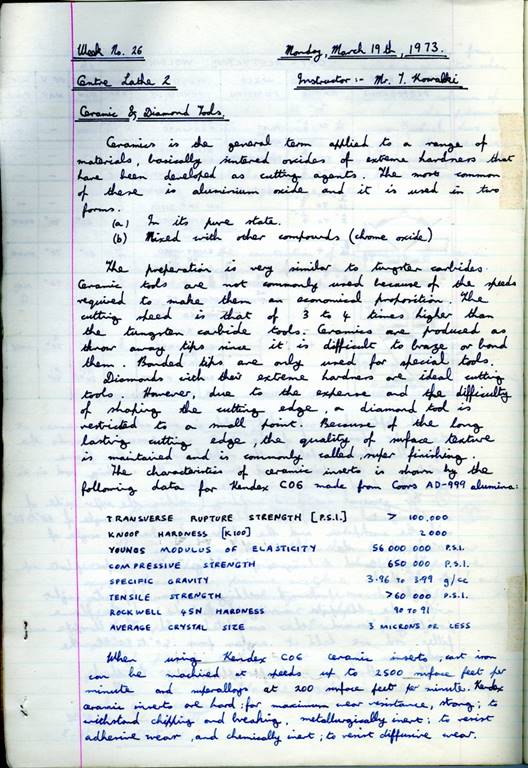 Week No. 26 Monday, March 19th, 1973.
Centre Lathe 2 Instructor :- Mr. T. Kowalski
Ceramic & Diamond Tools.
Ceramics is the general term applied to a range of
materials, basically sintered oxides of extreme hardness that
have been developed as cutting agents. The most common
of these is aluminium oxide and it is used in two
forms.
(a) In its pure state.
(b) Mixed with other compounds (chrome oxide)
The preparation is very similar to tungsten carbides.
Ceramic tools are not commonly used because of the speeds
required to make them an economical proposition. The
cutting speed is that of 3 to 4 times higher than
the tungsten carbide tools. Ceramics are produced as
throw away tips since it is difficult to braze or bond
them. Bonded tips are only used for special tools.
Diamonds with their extreme hardness are ideal cutting
tools. However, due to the expense and the difficulty
of shaping the cutting edge, a diamond tool is
restricted to a small point. Because of the long
lasting cutting edge, the quality of surface texture
is maintained and is commonly called, super finishing.
The characteristics of ceramic inserts is shown by the
following data for Kendex CO6 made from Coors AD-999 alumina:
TRANSVERSE RUPTURE STRENGTH [P.S.I.] > 100.000
KNOOP HARDNESS [K100] 2000
YOUNGS MODULUS OF ELASTICITY 56 000 000 P.S.I.
COMPRESSIVE STRENGTH 650 000 P.S.I.
SPECIFIC GRAVITY 3.96 TO 3.99 g/cc
TENSILE STRENGTH >60 000 P.S.I.
ROCKWELL 45N HARDNESS 90 TO 91
AVERAGE CRYSTAL SIZE 3 MICRONS OR LESS
When using Kendex CO6 ceramic inserts, cast iron
can be machined at speeds up to 2500 surface feet per
minute and superalloys at 200 surface feet per minute. Kendex
ceramic inserts are hard; for maximum wear resistance, strong; to
withstand chipping and breaking, metallurgically inert; to resist
adhesive wear, and chemically inert; to resist diffusive wear.